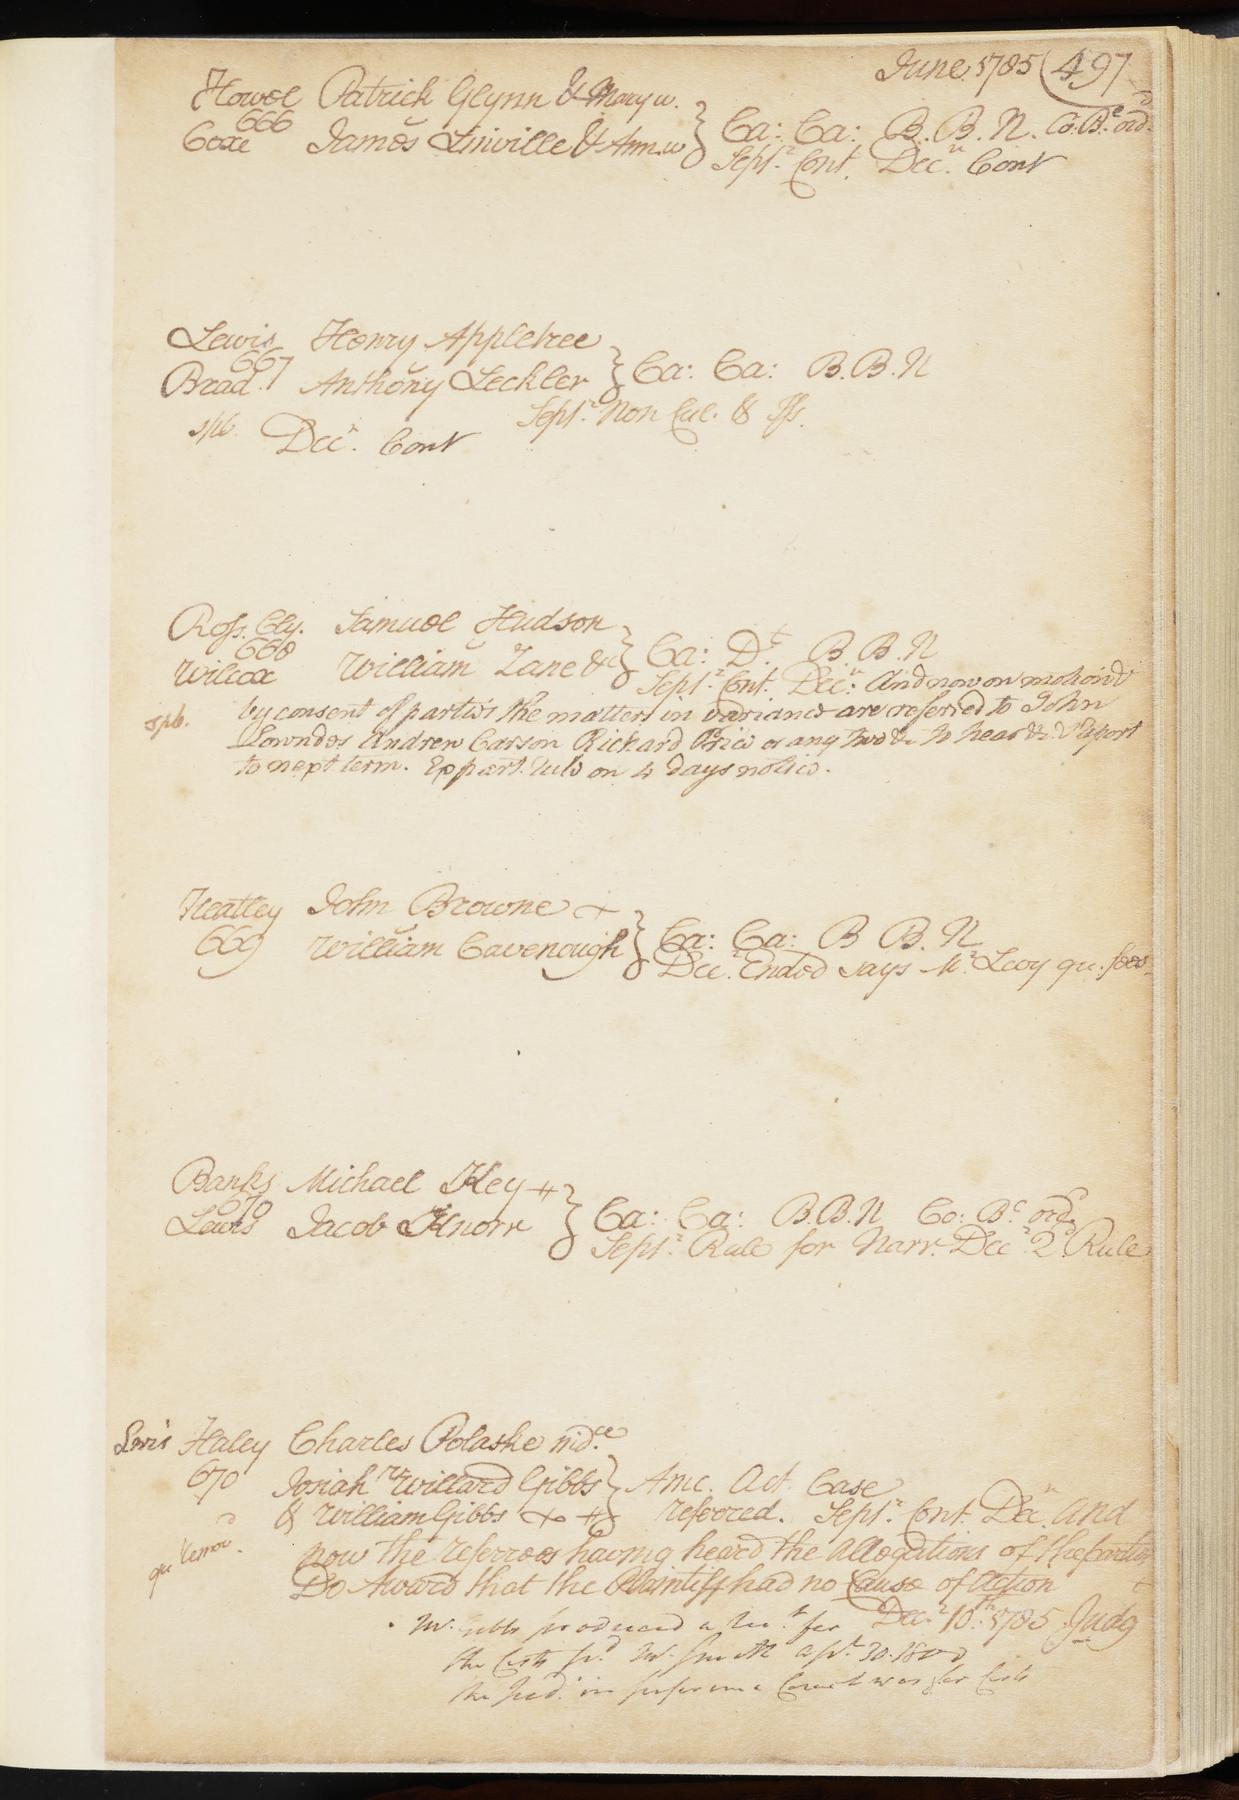 June 1785 (497
Howel Patrick Glynn & Mary w.
666
Coxe James Linville & Ann w } Ca: Ca: B. B. N. Co. Bc. ord.
Sept. Cont. Dec. Cont
Lewis Henry Appletree
667
Brad. Anthony Leckler } Ca: Ca: B. B. N
Sept. Non Cul. & Iss.
spb. Dec. Cont
Ross. Cly. Samuel Hudson
668
Wilcox William Lane &c } Ca: Dt. B. B. N
Sept. Cont. Dec. And now on motion &
by consent of parties the matters in variance are referred to John
spb.
Lowndes Andrew Carson Richard Price or any two &c to hear &c. & Report
to next term. Ex part. Rule on 4 days notice.
Heatley John Browne
669 William Cavenough } Ca: Ca: B B. N
Dec. Ended says Mr. Levy qu. fees
Banks Michael Key
670
Lewis Jacob Knorr } Ca: Ca: B. B. N Co: Bc. ord.
Sept. Rule for Narr. Dec. 2d. Rule
Lewis Haley Charles Polaske
670 Josiah Willard Gibbs } Amc. Act. Case
& William Gibbs referred. Sept. Cont. Dec. And
now the referrees having heard the allegations of the parties
Do Award that the Plaintiff had no Cause of Action
Dec. 10th. 1785 Judg
Mr. Gibbs produced a for
the Costs pd. Mr. Smith apl. 30. 1800
the in supreme Court was for Costs